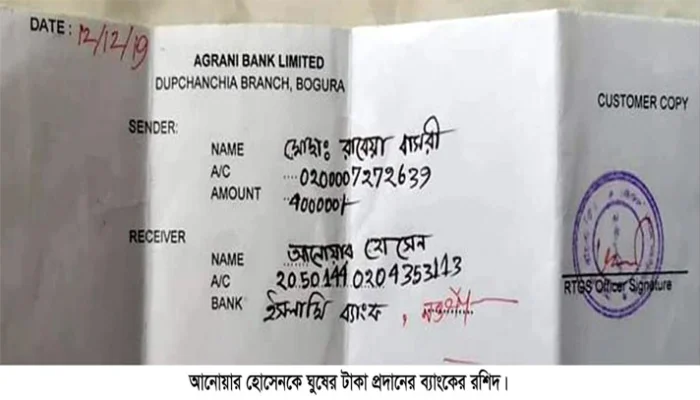 DATE : 12/12/19
AGRANI BANK LIMITED
DUPCHANCHIA BRANCH, BOGURA
CUSTOMER COPY
SENDER:
NAME মোছাঃ রাবেয়া বাসরী
A/C 0200007272639
AMOUNT 400000/-
RECEIVER
NAME আনোয়ার হোসেন
A/C 20501440204353113
BANK ইসলামি ব্যাংক,
RTGS Officer Signature
আনোয়ার হোসেনকে ঘুষের টাকা প্রদানের ব্যাংকের রশিদ।